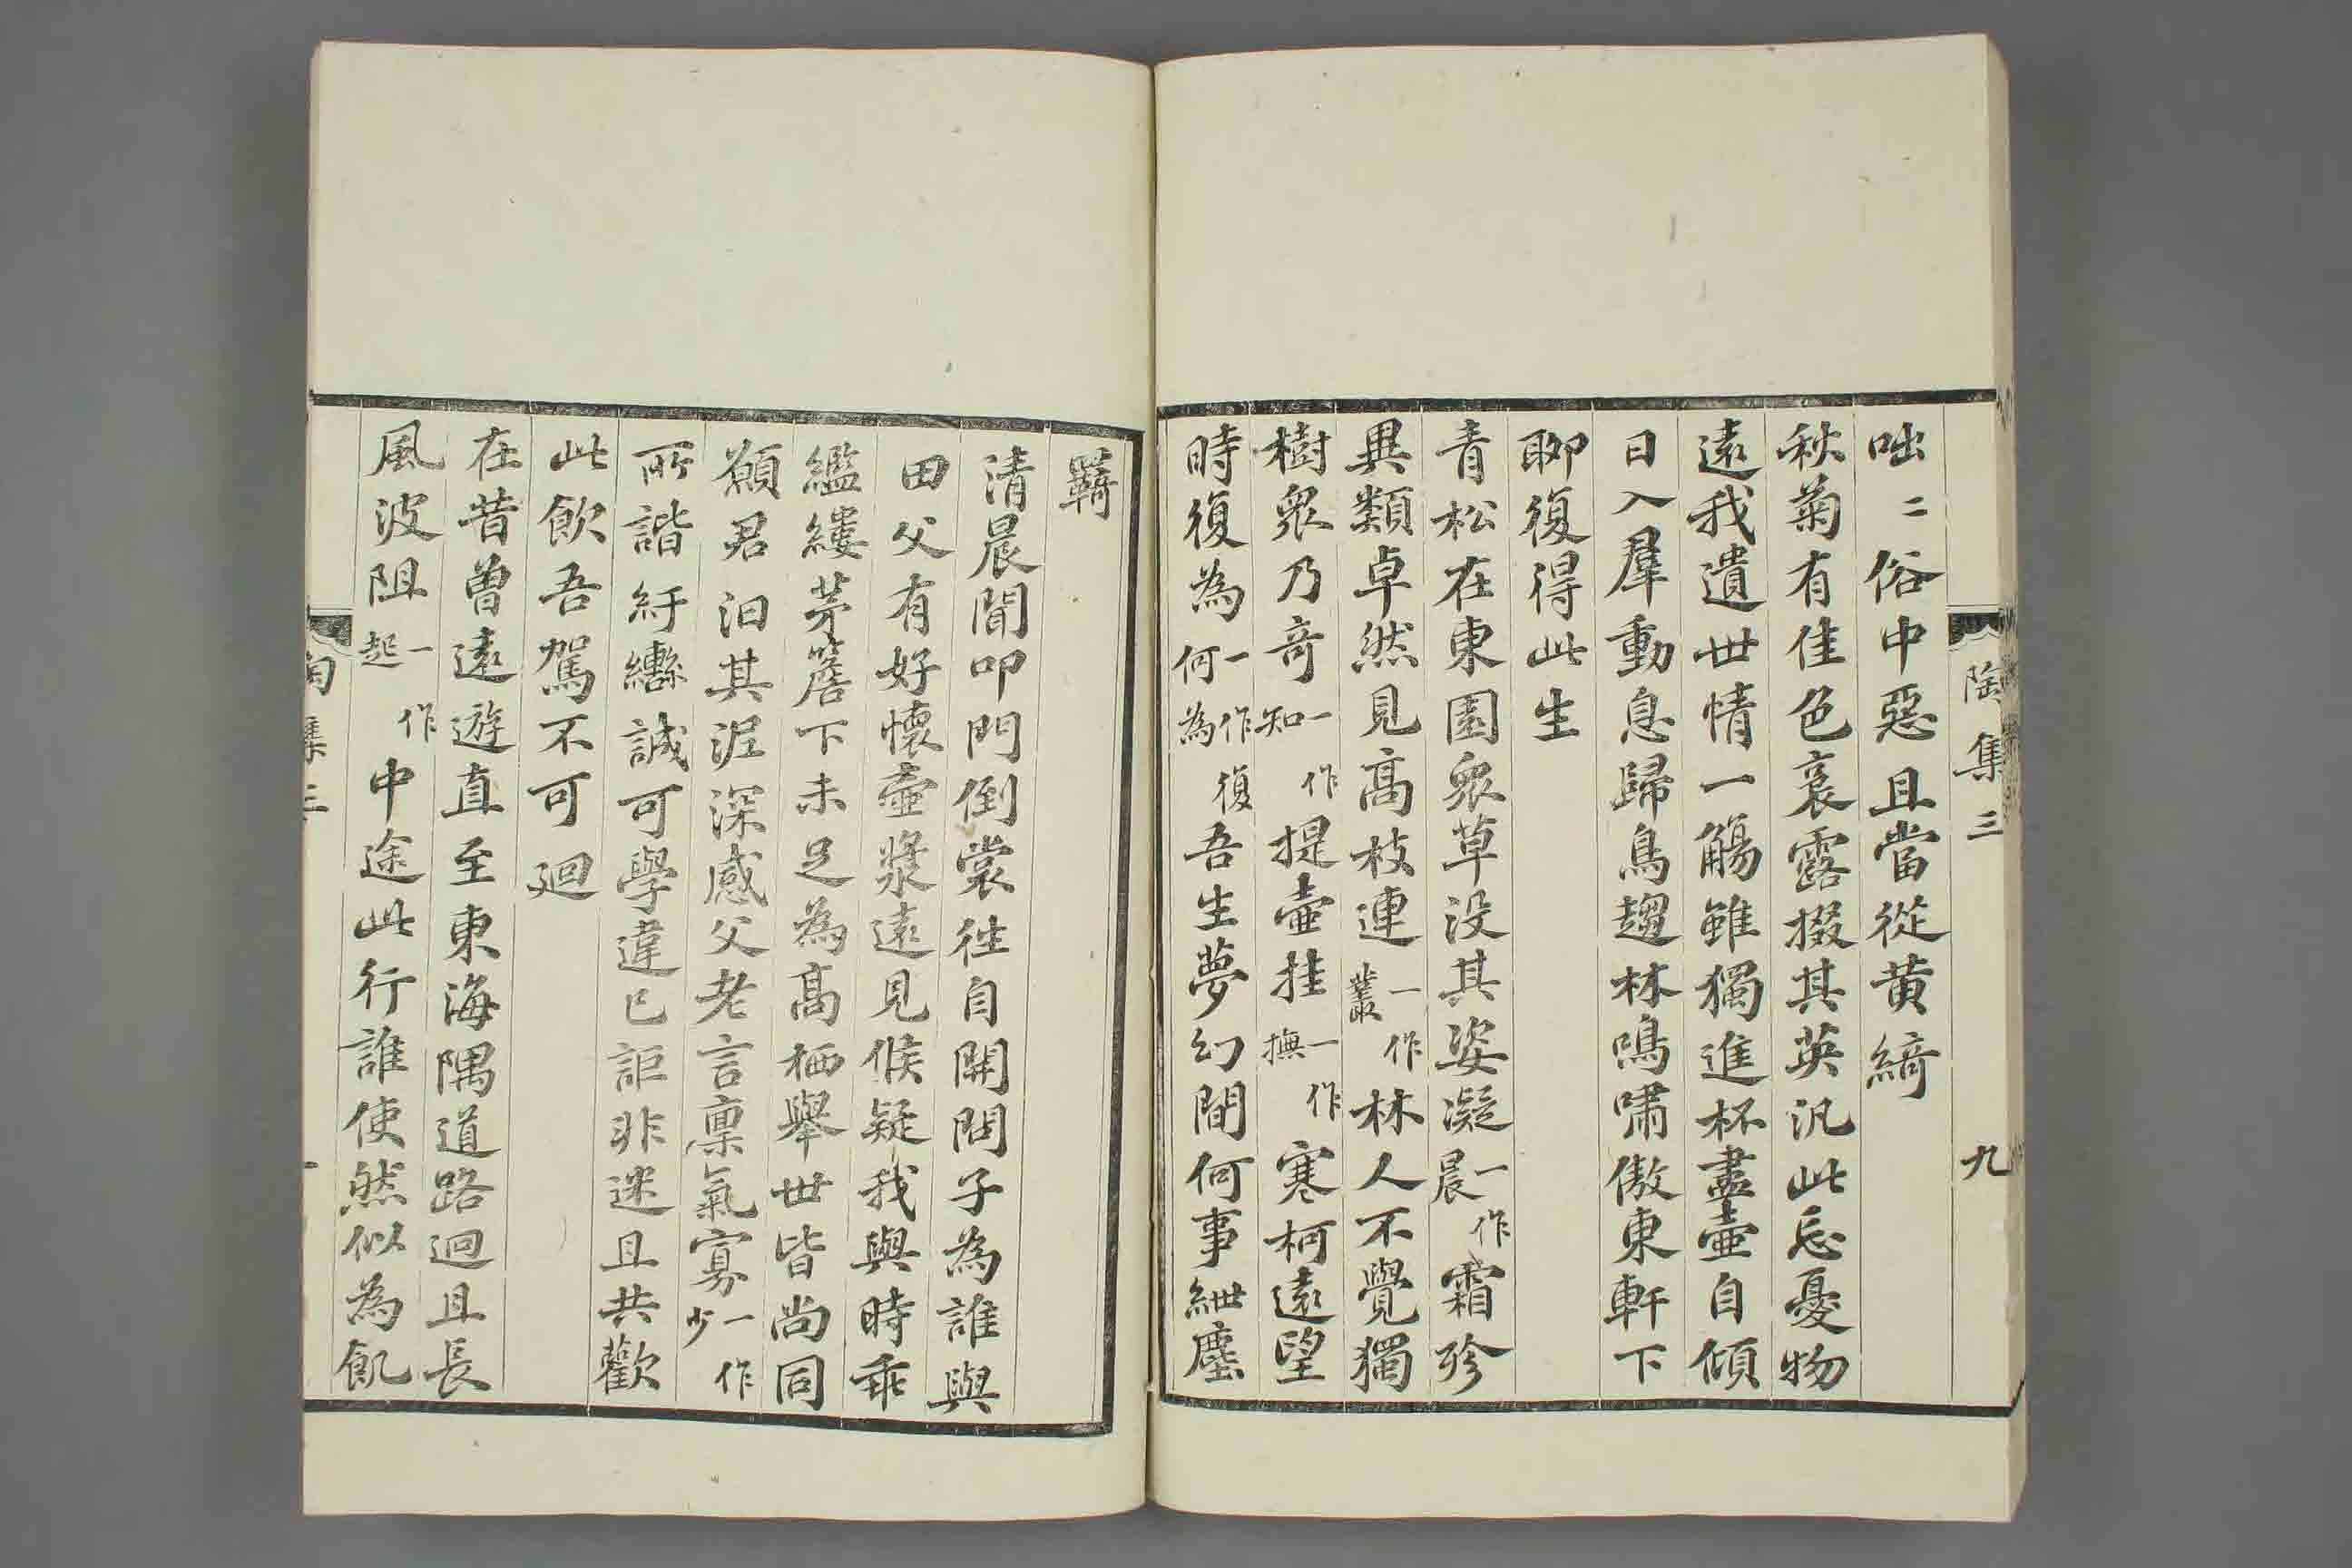 陶集三 九
咄二俗中惡且當從黄綺
秋菊有佳色裛露掇其英汎此忘憂物
遠我遺世情一觴雖獨進杯盡壷自傾
日入羣動息歸鳥趨林鳴嘯傲東軒下
聊復得此生
青松在東園衆草没其姿凝一作晨霜殄
異類卓然見髙枝連一作叢林人不覺獨
樹衆乃奇一作知提壷挂一作撫寒柯遠望
時復為一作復何為吾生夢幻間何事紲塵
羇
清晨聞叩門倒裳徃自開問子為誰與
田父有好懷壷漿遠見候疑我與時乖
繿縷茅簷下未足為髙栖舉世皆尚同
願君汩其泥深感父老言禀氣寡一作少
所諧紆轡誠可學違已詎非迷且共歡
此飲吾駕不可廻
在昔曽遠遊直至東海隅道路迴且長
風波阻一作起中途此行誰使然似為飢
陶集三